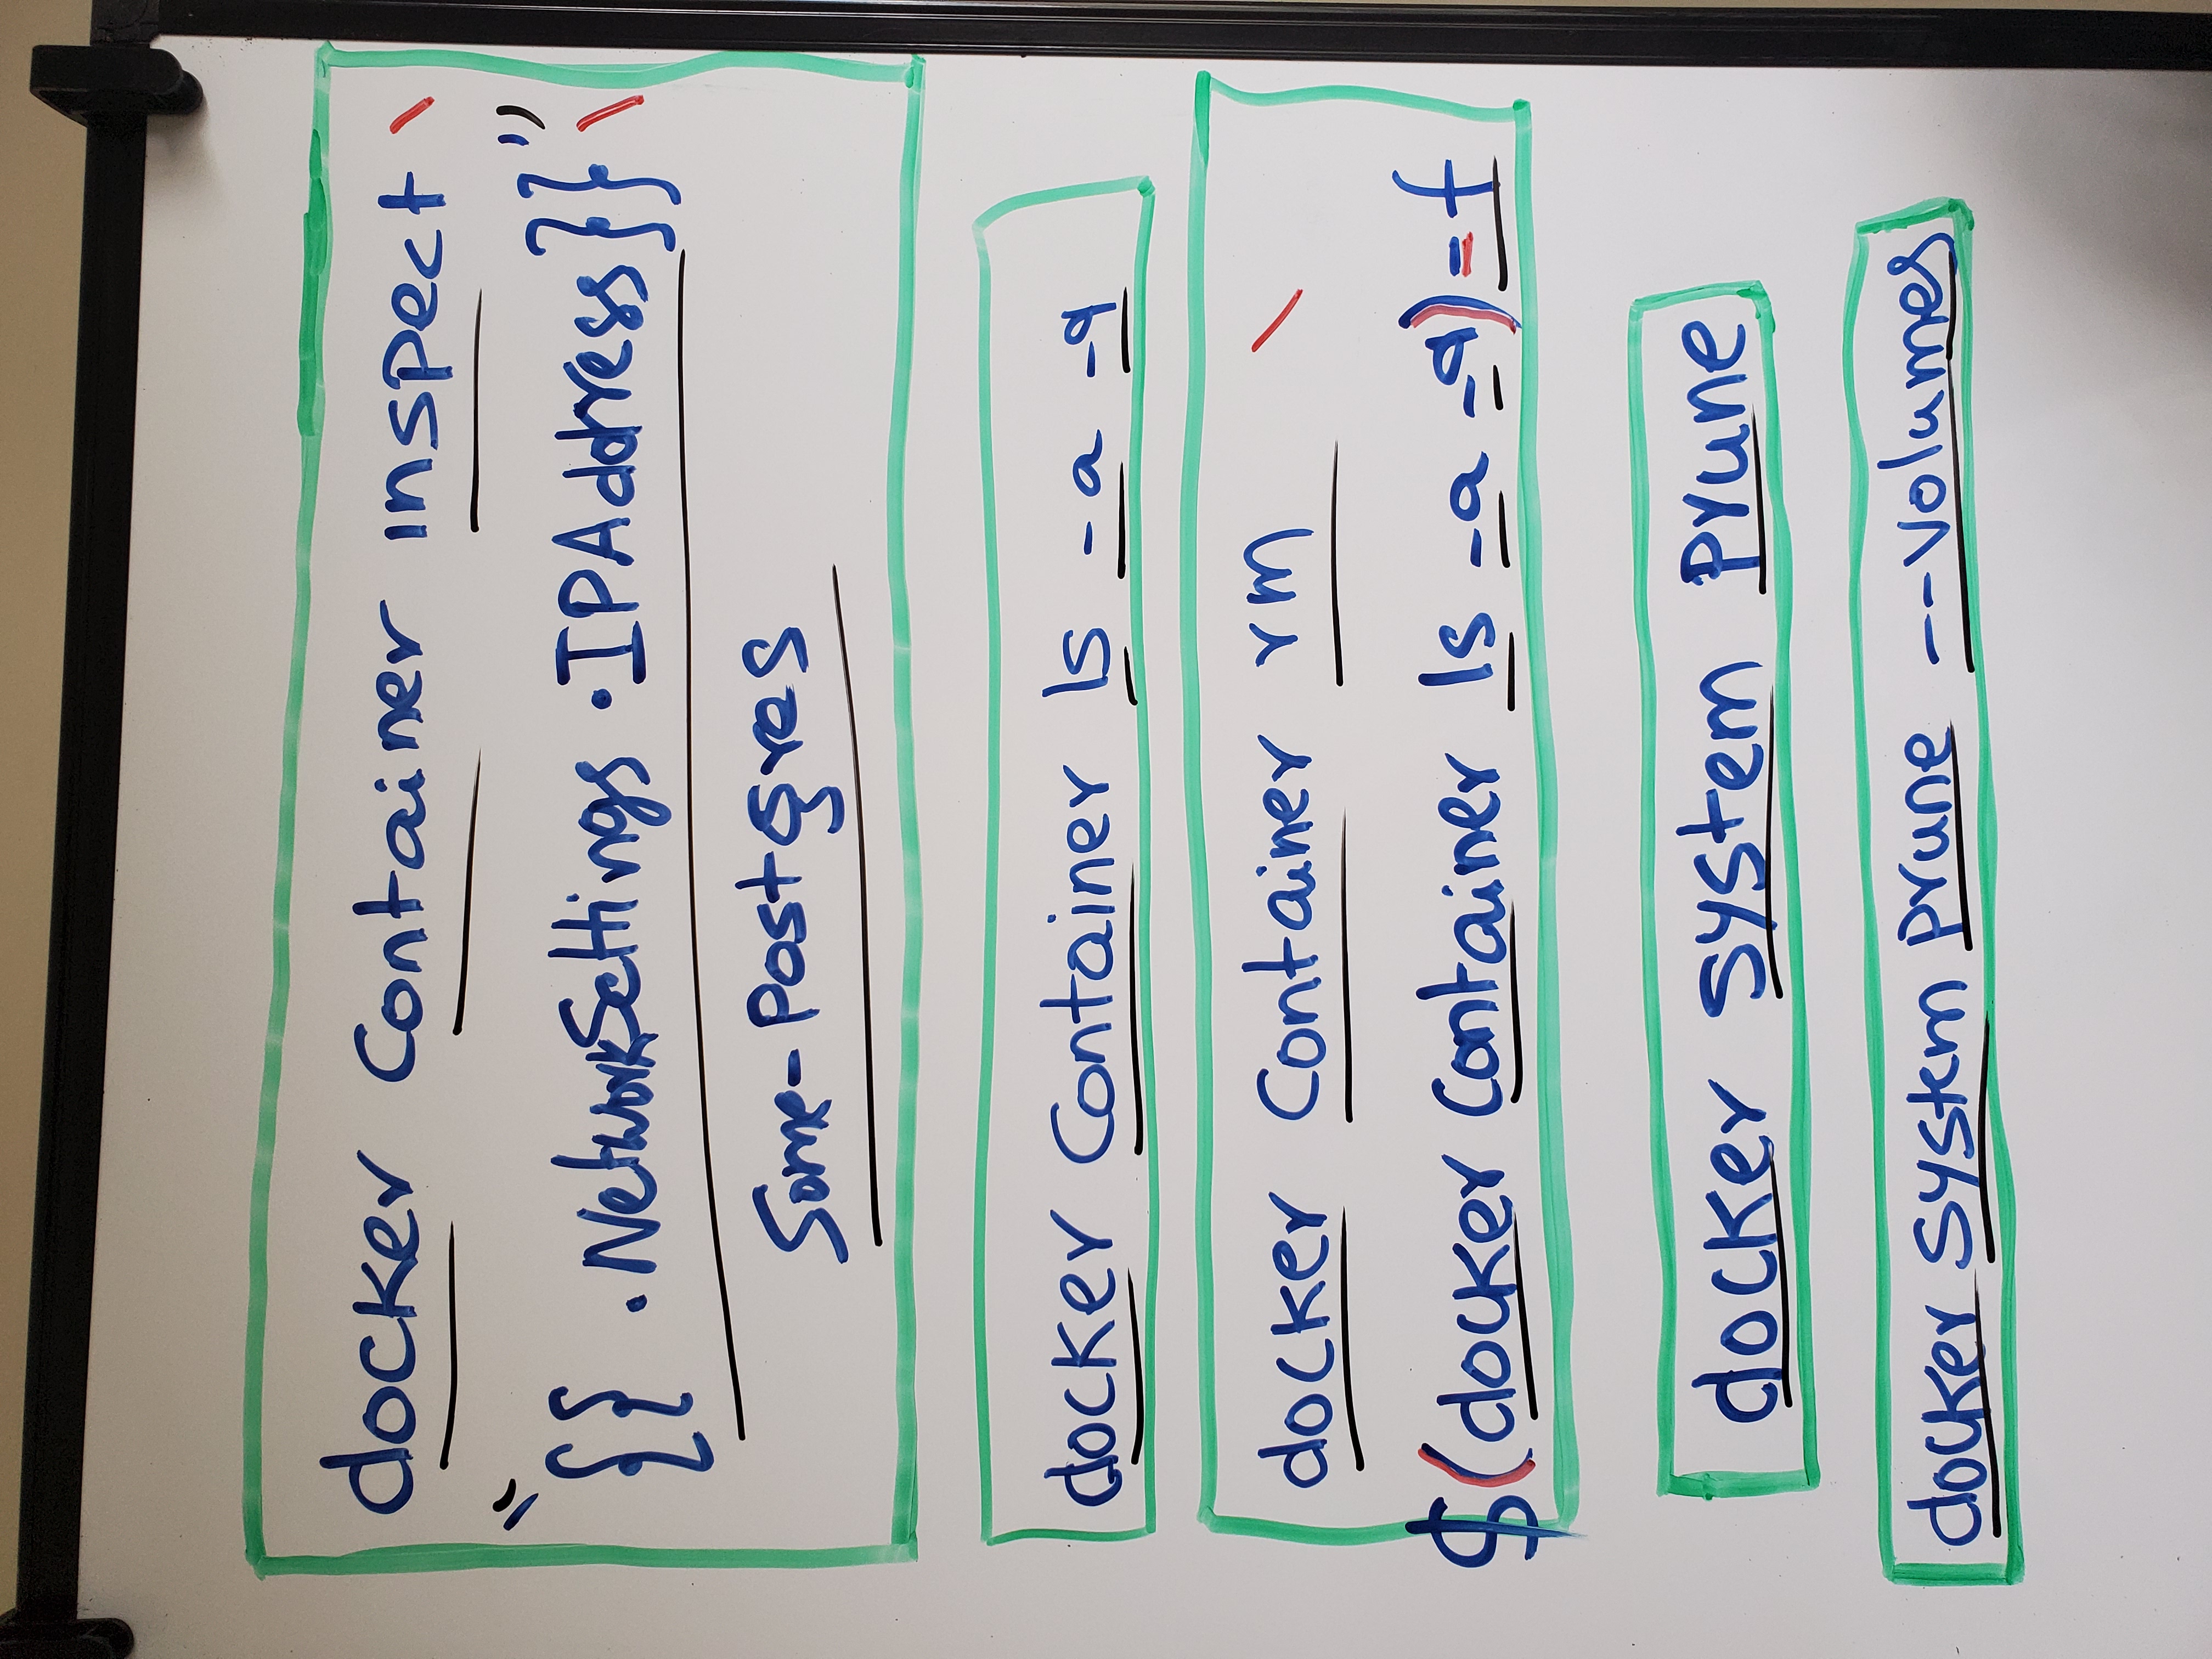 docker Container inspect \
"{{ .NetworkSettings .IPAddress}}" \
Some-Postgres
docker Container ls -a -q
docker Container rm \
$(docker Container ls -a -q) =f
docker system prune
docker system prune --volumes